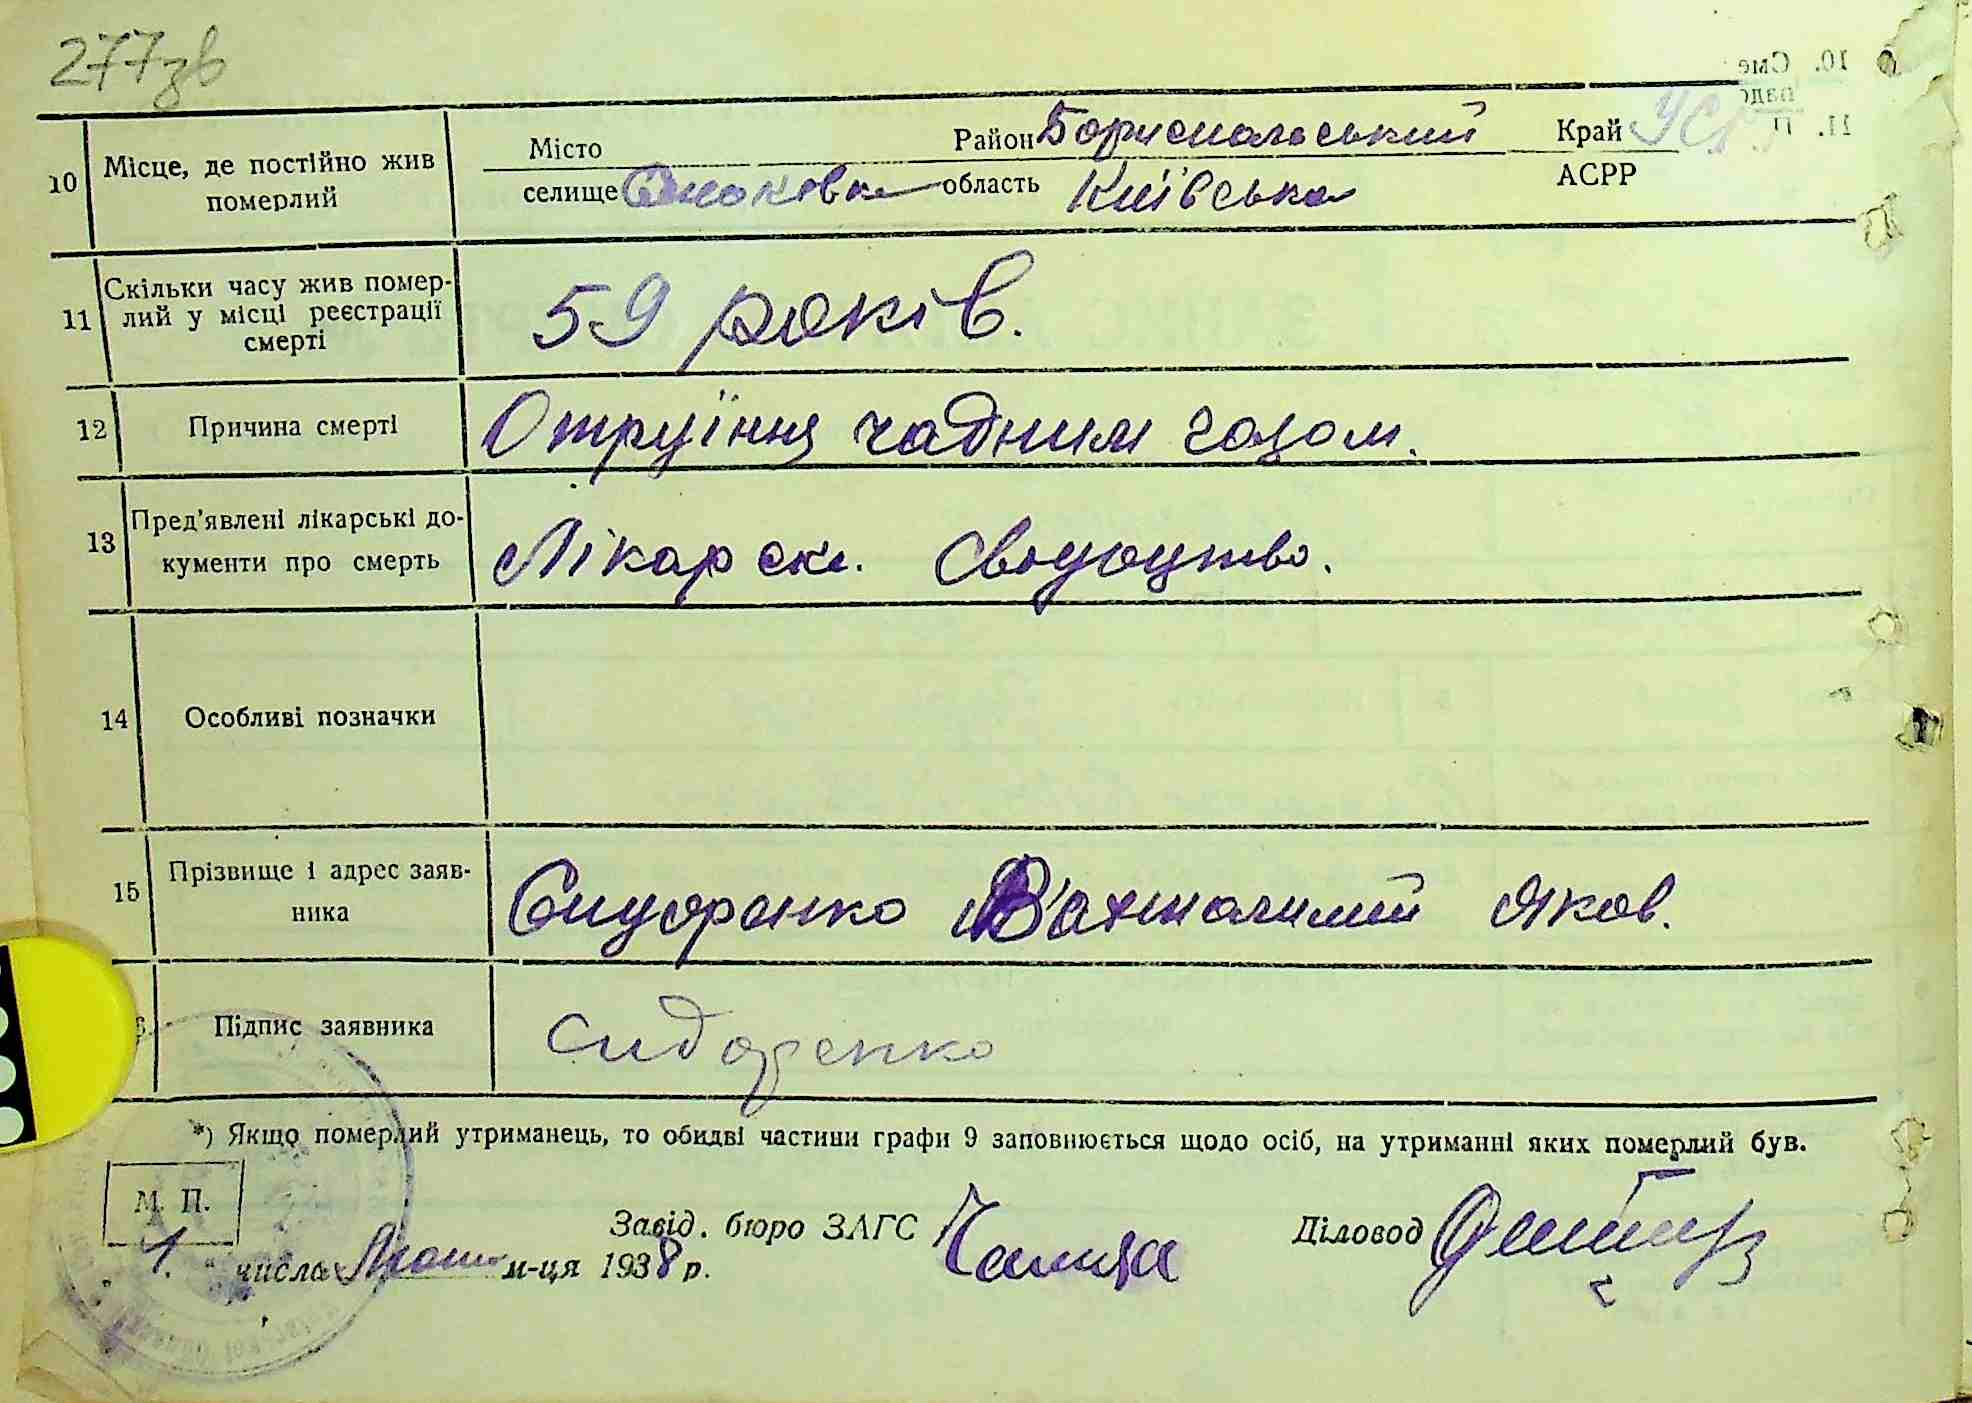 277зв
10 Місце, де постійно жив померлий Місто Район Бориспольський Край УСРР
селище область Київська АСРР
11 Скільки часу жив помер-
лий у місці реєстрації
смерті
59 років.
12 Причина смерті Отруїння чадним газом.
13 Пред'явлені лікарські до-
кументи про смерть
Лікарске. Свідоцтво.
14 Особливі позначки
15 Прізвище і адрес заяв-
ника
Сидоренко Яков.
Підпис заявника Сидоренко
*) Якщо померлий утриманець, то обидві частини графи 9 заповнюється щодо осіб, на утриманні яких померлий був.
М. П.
Завід. бюро ЗАГС Діловод
„ 1. “ числа м-ця 1938 р.
10. Сме
11. П